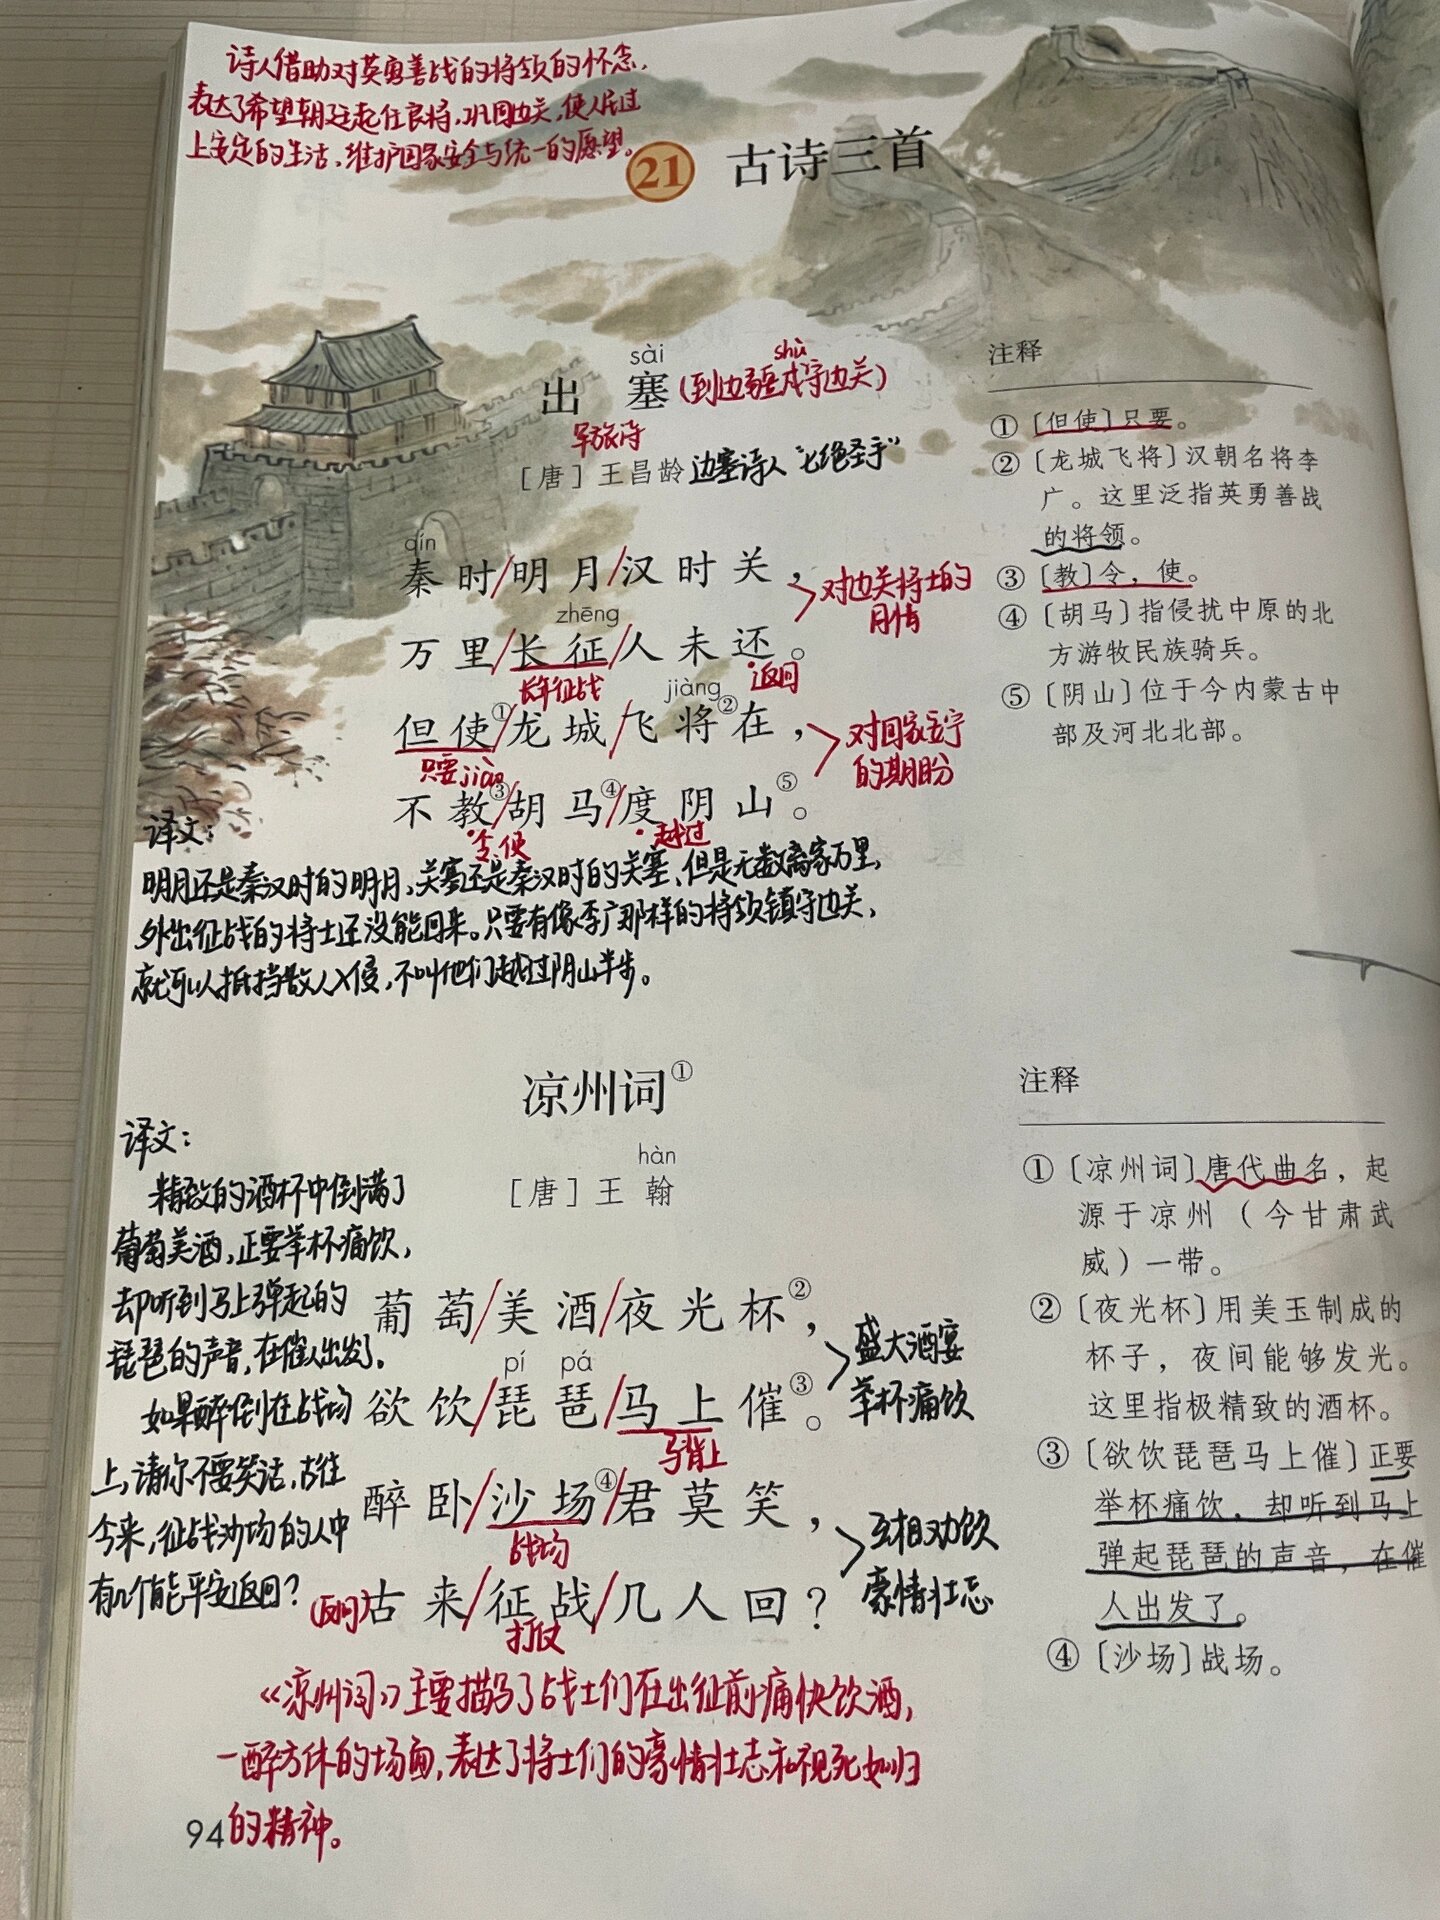 诗人借助对英勇善战的将领的怀念，
表达了希望朝廷起任良将，巩固边关，使人民过
上安定的生活，维护国家安全与统一的愿望。
21 古诗三首
sài
shù
出塞(到边疆戍守边关)
军旅诗
［唐］王昌龄 边塞诗人“七绝圣手”
qín
秦时/明月/汉时关，
zhēng
万里/长征/人未还。
长年征战
返回
对边关将士的
同情
jiàng
但使①/龙城/飞将②在，
只要
jiào
不教③/胡马④/度阴山⑤。
令，使
越过
对国家安宁
的期盼
注释
①〔但使〕只要。
②〔龙城飞将〕汉朝名将李
广。这里泛指英勇善战
的将领。
③〔教〕令，使。
④〔胡马〕指侵扰中原的北
方游牧民族骑兵。
⑤〔阴山〕位于今内蒙古中
部及河北北部。
译文：
明月还是秦汉时的明月，关塞还是秦汉时的关塞、但是无数离家万里，
外出征战的将士还没能回来。只要有像李广那样的将领镇守边关，
就可以抵挡敌人入侵，不叫他们越过阴山半步。
凉州词①
hàn
［唐］王翰
葡萄/美酒/夜光杯②，
pí pá
欲饮/琵琶/马上催③。
马背上
盛大酒宴
举杯痛饮
醉卧/沙场④/君莫笑，
战场
(反问)古来/征战/几人回？
打仗
互相劝饮
豪情壮志
译文：
精致的酒杯中倒满了
葡萄美酒，正要举杯痛饮，
却听到马上弹起的
琵琶的声音，在催人出发了。
如果醉倒在战场
上，请你不要笑话，古往
今来，征战沙场的人中
有几个能平安返回？
注释
①〔凉州词〕唐代曲名，起
源于凉州（今甘肃武
威）一带。
②〔夜光杯〕用美玉制成的
杯子，夜间能够发光。
这里指极精致的酒杯。
③〔欲饮琵琶马上催〕正要
举杯痛饮，却听到马上
弹起琵琶的声音，在催
人出发了。
④〔沙场〕战场。
《凉州词》主要描写了战士们在出征前痛快饮酒，
一醉方休的场面，表达了将士们的豪情壮志和视死如归
的精神。
94